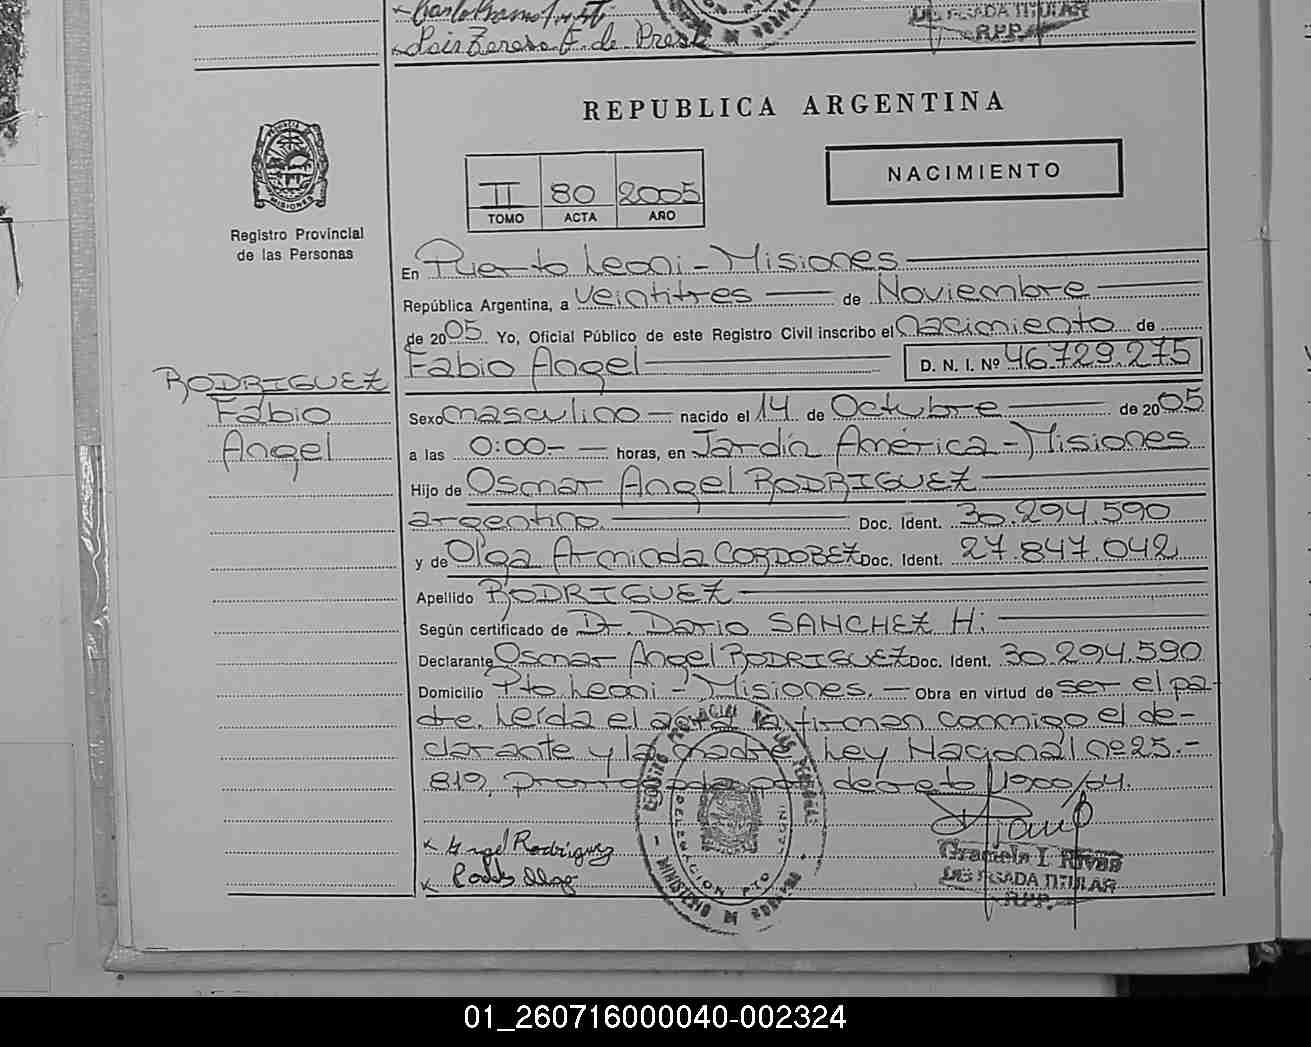 Luis Teresa F. de Prest
DELEGADA TITULAR
R.P.P.
REPUBLICA ARGENTINA
PROVINCIA
MISIONES
Registro Provincial
de las Personas
II 80 2005
TOMO ACTA AÑO
NACIMIENTO
En Puerto Leoni - Misiones
República Argentina, a veintitres de Noviembre
de 2005 Yo, Oficial Público de este Registro Civil inscribo el nacimiento de
Fabio Angel D. N. I. Nº 46.729.275
RODRIGUEZ
Fabio
Angel
Sexo masculino nacido el 14 de Octubre de 2005
a las 0:00 horas, en Jardín América - Misiones
Hijo de Osmar Angel RODRIGUEZ
argentino. Doc. Ident. 30.294.590
y de Olga Arminda CORDOBEZ Doc. Ident. 27.847.042
Apellido RODRIGUEZ
Según certificado de Dr. Dario SANCHEZ H:
Declarante Osmar Angel RODRIGUEZ Doc. Ident. 30.294.590
Domicilio Pto Leoni - Misiones. Obra en virtud de ser el pa-
dre. Leída el acta la firman conmigo el de-
clarante y la madre. Ley Nacional nº 25.-
819, prorrogada por decreto 1900/04.
Angel Rodriguez
MINISTERIO DE GOBIERNO
DELEGACION PTO
Graciela I. Rivas
DELEGADA TITULAR
R.P.P.
01_260716000040-002324